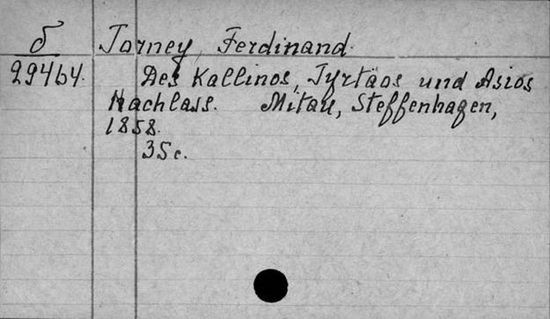 δ Torney, Ferdinand.
29464. Des Kallinos, Tyrtäos und Asios
Nachlass. Mitau, Steffenhagen,
1858.
35 c.